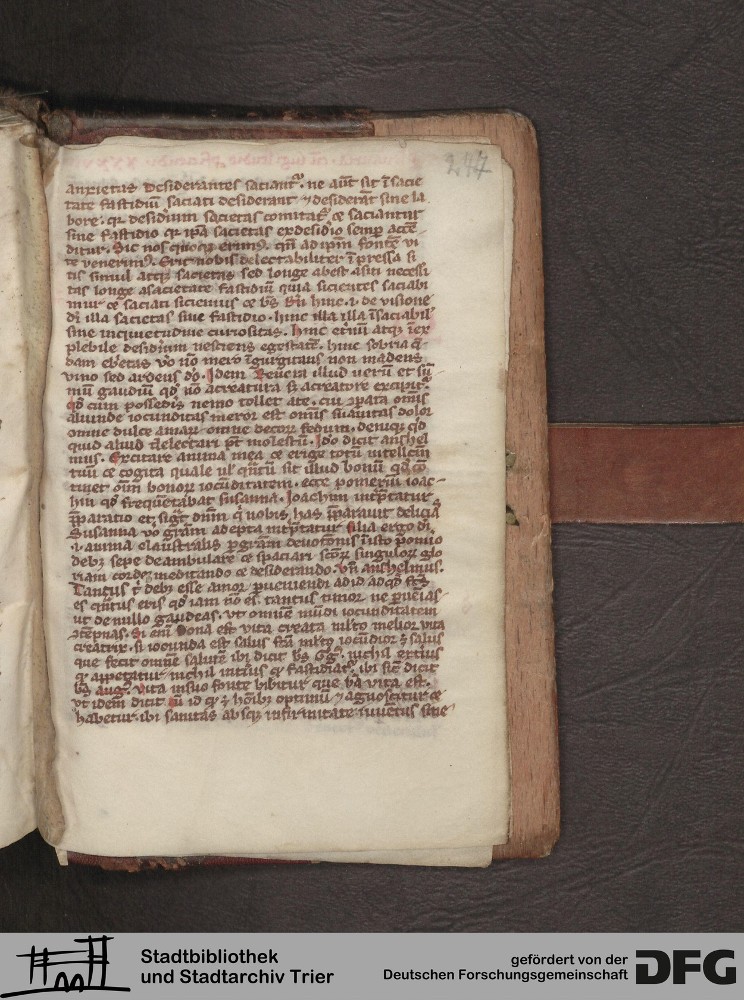 247
anxietas desiderantes saciant᷑. ne aūt sit ī sacie
tate fastidiū saciati desiderant ⁊ desiderāt sine la
bore. qꝛ desideriū societas comitat᷑ ⁊ saciantur
sine fastidio qꝛ ipā sacietas ex desid̓io semp̱ accē
ditur. Sic nos quoqꝫ erimꝰ. qn̄ ad ip̄m fontē vi
te venerimꝰ. Erit nobis delectabiliter īpressa si
tis simul atqꝫ sacietas sed longe abest a siti necessi
tas longe a sacietate fastidiū quia sicientes saciabi
mur ⁊ saciati siciemus
dī illa sacietas sine fastidio. hinc illa illa īsaciabil̓
sine inquietudine curiositas. hinc et̓nū atqꝫ īex
plebile desid̓ium nesciens egestatē. hinc sobria q̄
dam eb̓etas v̓o nō mero īgurgitans non madens
vino sed ardens dō. Idem
mū gaudiū qd̓ nō a creatura sꝫ a creatore
qd̓ cum possedis nemo tollet a te. cui ꝯpata om̄is
aliunde iocunditas meror est om̄is suauitas dolor
omne dulce amaꝝ omne decoꝝ fedum. deniqꝫ qd̓
quid aliud delectari pt̄ molestū. Ido dicit anshel
mus. Excitare anima mea ⁊ erige totū intellcm̄
tuū ⁊ cogita quale ul̓ qn̄tū sit illud bonū qd̓ cō
tinet om̄m bonoꝝ iocūditatem. ecce pomeriū ioac
him qd̓ frequētabat susanna. Ioachim int̓p̄tatur
p̄paratio et sigt̓ dn̄m q̓ nobis has p̄parauit delicias
Susanna v̓o gr̄am adepta int̓p̄tatur filia ergo
.i. anima claustralis ꝑ gr̄am deuotōnis ī isto pom̄io
debꝫ sepe deambulare ⁊ spaciari
riam cordeꝫ meditando ⁊ desiderando. vn̄ anshelmus.
Tantus debꝫ esse amor ꝑueniendi ad id ad qd̓
es qn̄tus eris qd̓ iam nō es. tantus timor ne ꝑueias
ut de nullo gaudeas. vt omnē mūdi iocunditatem
ꝯtēpnas. Si em̄ bona est vita creata ml̓to melior vita
creatrix. si iocunda est salus fc̄a ml̓to iocūdior ē salus
que fecit omnē salutē ibi dicit bs̄ Gg̓. nichil ext̓ius
qꝛ appetatur nichil int̓ius qꝛ fastidiat᷑. ibi sicut dicit
bs̄ augꝰ. vita in suo fonte bibitur que bā vita est.
vt idem dicit cū id qꝛ ē hoībꝫ optimū ⁊ agnoscitur ⁊
habetur. ibi sanitas absqꝫ infirmitate iuuētus sine
Stadtbibliothek
und Stadtarchiv Trier
gefördert von der
Deutschen Forschungsgemeinschaft
DFG